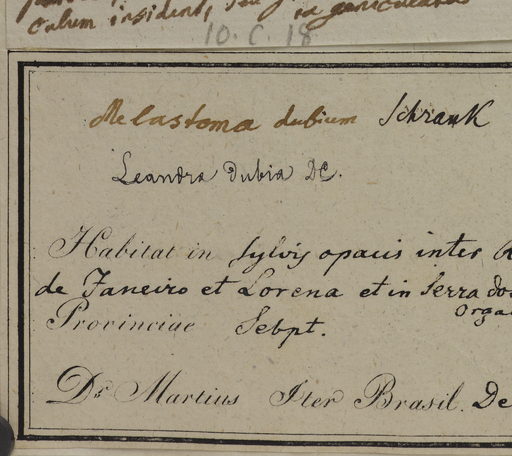 culum insident, seu
10. C. 18
Melastoma dubium Schrank
Leandra dubia DC.
Habitat in sylvis opacis inter
de Janeiro et Lorena et in Serra dos
Orga
Provinciae Sebpt.
Dr. Martius Iter Brasil. De